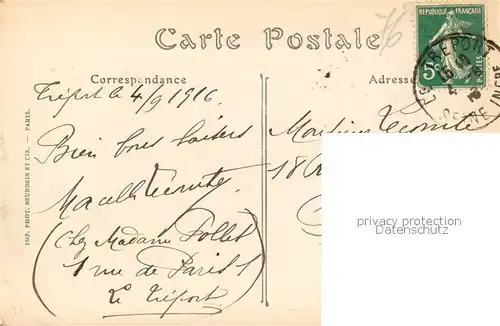 Carte Postale
Correspondance
Adresse
RÉPUBLIQUE FRANÇAISE
5c
POSTES
Tréport le 4/9 1916
Bien bons baisers
Lecomte
(Chez Madame Follet
1 rue de Paris
Le Tréport)
Lecomte
18
IMP. PHOT. NEURDEIN ET CIE. — PARIS.
privacy protection
Datenschutz